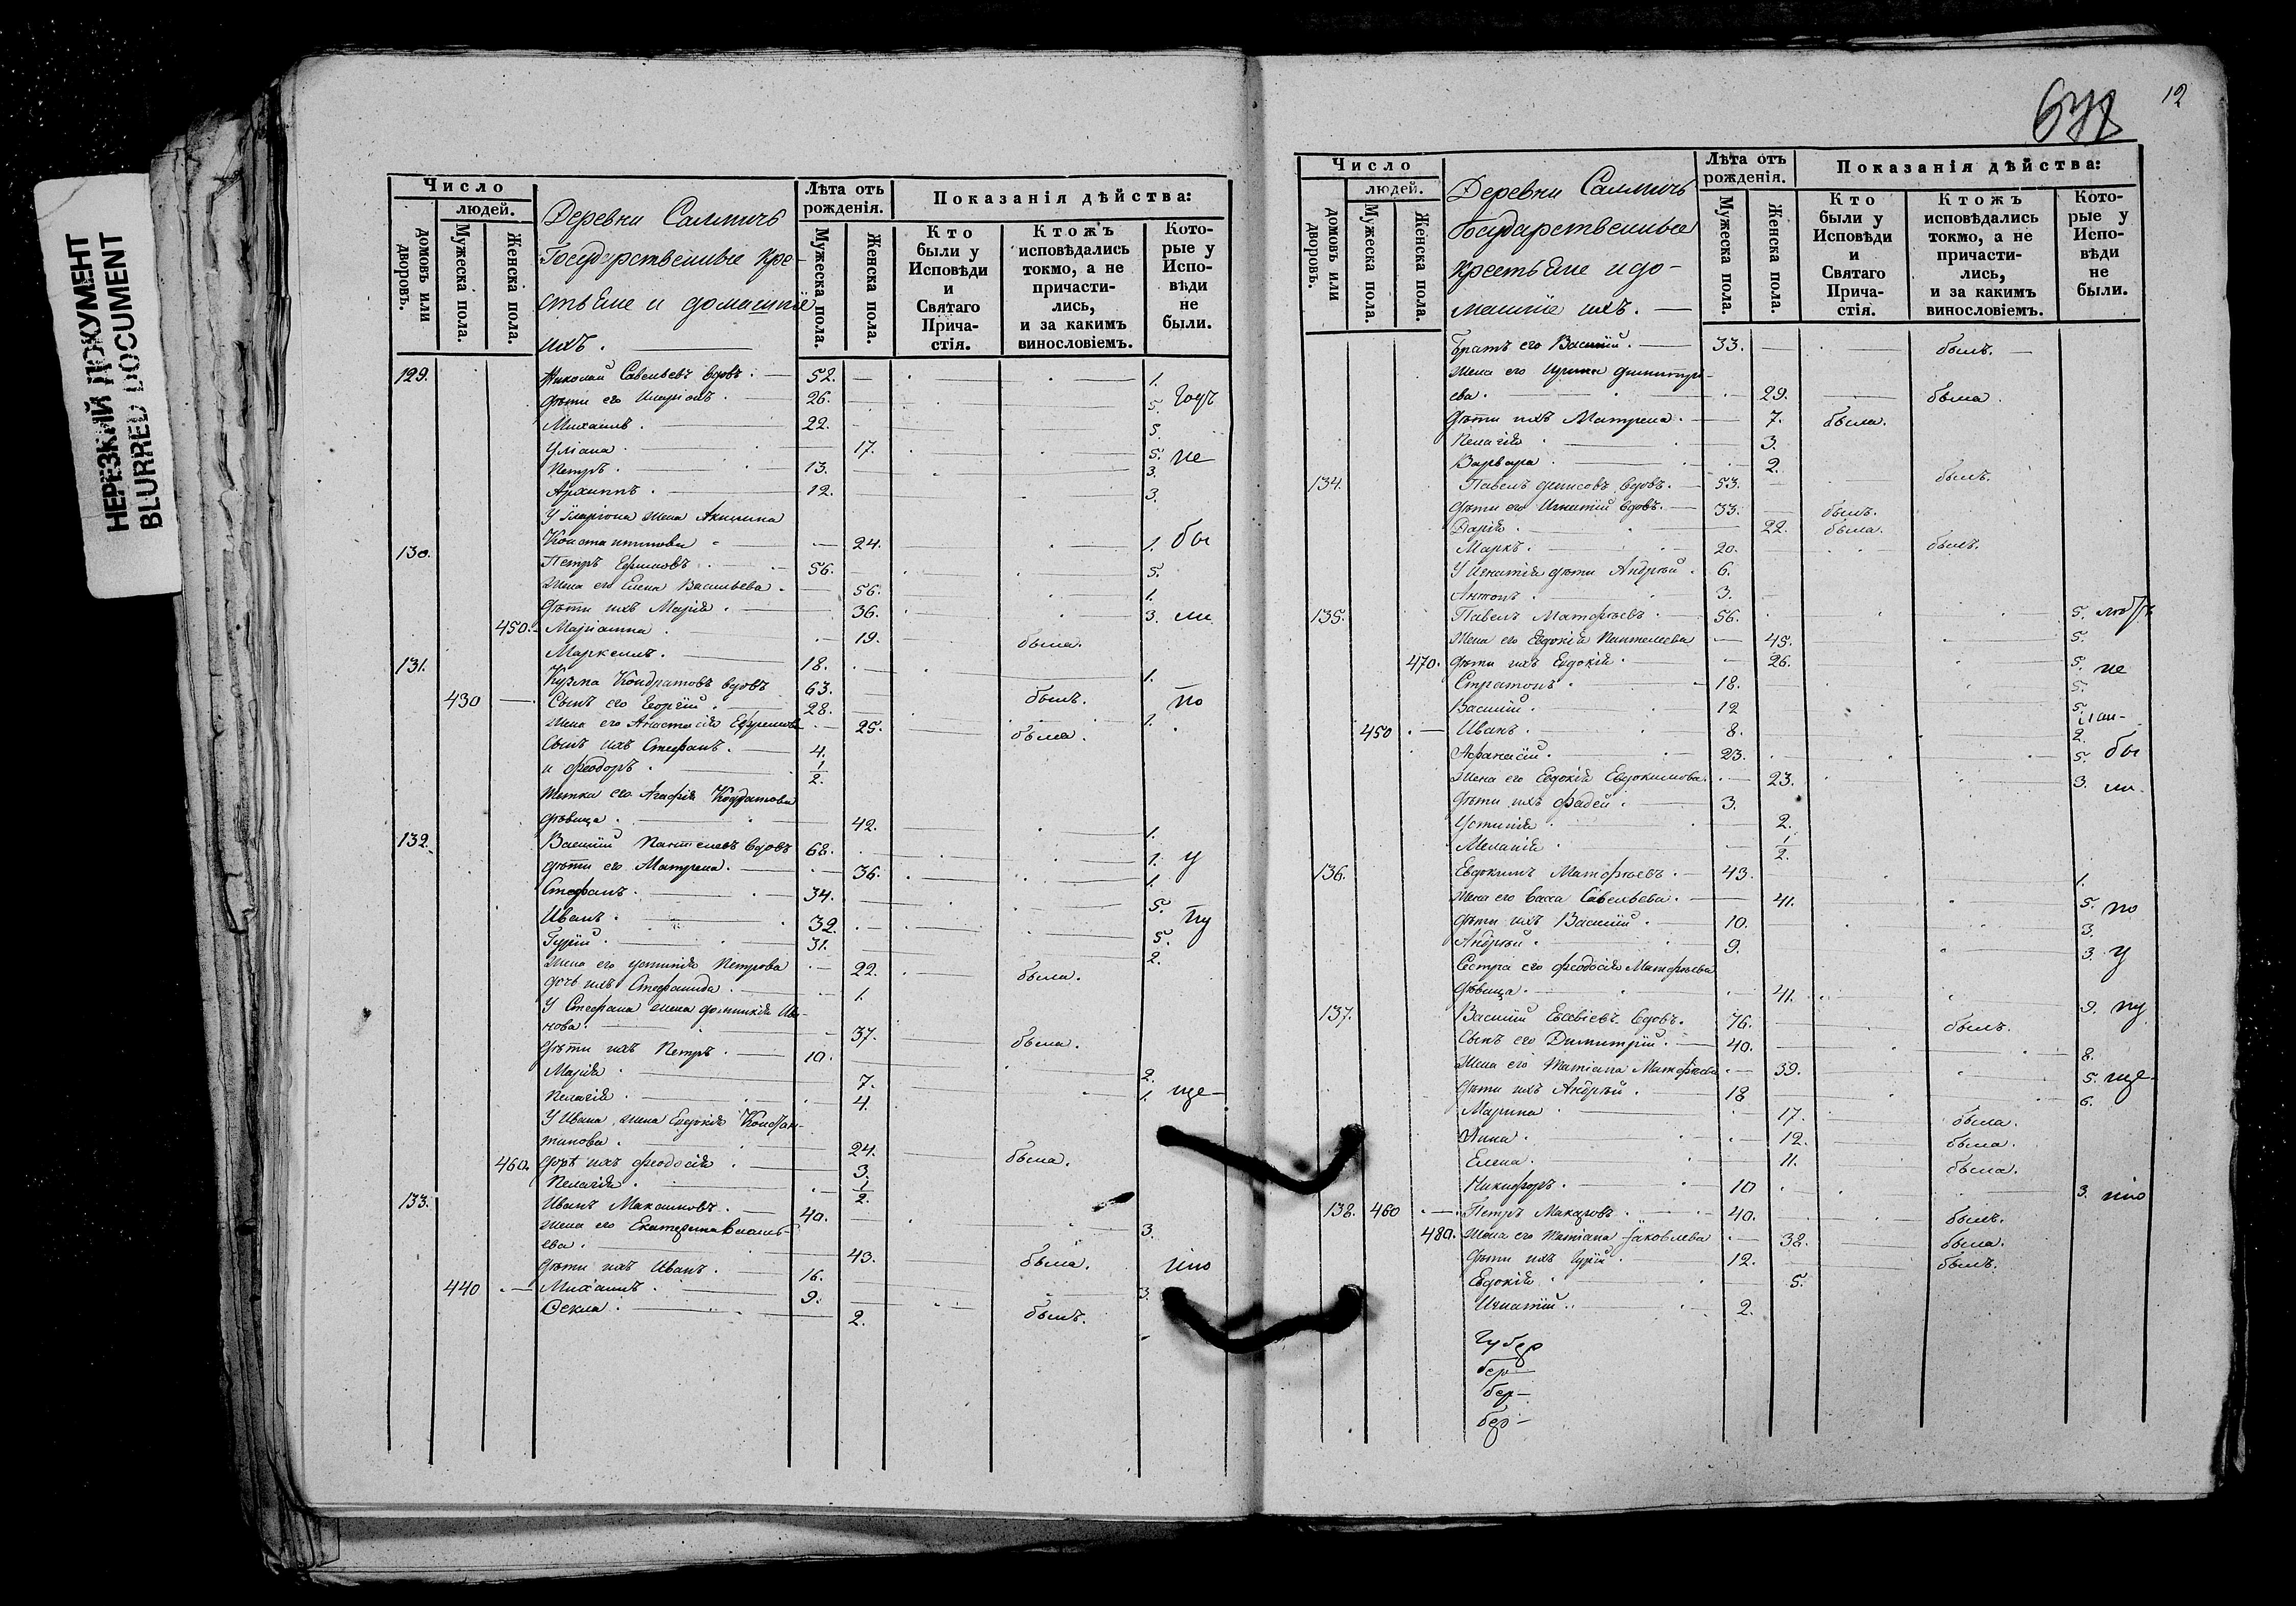 НЕРЕЗКИЙ ДОКУМЕНТ
BLURRED DOCUMENT
Число
людей.
домовъ или дворовъ.
Мужеска пола.
Женска пола.
Деревни
Государственные кре-
стьяне и домашніе
ихъ.
Лѣта отъ рожденія.
Мужеска пола.
Женска пола.
Показанія дѣйства:
Кто были у Исповѣди и Святаго Прича- стія.
Ктожъ исповѣдались токмо, а не причасти- лись, и за какимъ винословіемъ.
Кото- рые у Испо- вѣди не были.
129. Николай Савельевъ вдовъ. 52. 1.
дѣти его Иларіонъ. 26. 5.
Михаилъ. 22. 5.
Уліана. 17. 5. не
Петръ. 13. 3.
Архиппъ. 12. 3.
У Иларіона жена Акилина
Константинова 24. 1. бы
130. Петръ Ефимовъ. 56. 5.
Жена его Елена Васильева. 56. 1.
дѣти ихъ Марія. 36. 3. ли
450. Маріанна. 19. была.
Маркеллъ. 18. 1.
131. Кузма Кондратовъ вдовъ 63.
430 Сынъ его Георгій. 28. былъ. по
жена его Анастасія Ефремова 25. была. 1.
Сынъ ихъ Стефанъ. 4.
и Феодоръ. 1/2.
тетка его Агафія
дѣвица. 42. 1.
132. Василій вдовъ 68. 1. у
дѣти его Матрена. 36. 1.
Стефанъ. 34. 5.
Иванъ. 32. 5. пу
Гурій. 31. 2.
жена его Устинія Петрова 22. была.
дочь ихъ Стефанида. 1.
У Стефана жена Домникія Ива-
нова. 37. была.
дѣти ихъ Петръ. 10. 2.
Марія. 7. 1. ще-
Пелагія. 4.
У Ивана жена Евдокія Констан-
тинова. 24. была.
460. дочь ихъ Феодосія. 3.
Пелагія. 1/2.
133. Иванъ Максимовъ. 40. 3.
жена его Екатерина Василь-
ева. 43. была.
дѣти ихъ Иванъ. 16. нію
440 Михаилъ. 9. 3.
Фекла. 2. былъ.
12
Число
людей.
домовъ или дворовъ.
Мужеска пола.
Женска пола.
Деревни
Государственные
крестьяне и до-
машніе ихъ.
Лѣта отъ рожденія.
Мужеска пола.
Женска пола.
Показанія дѣйства:
Кто были у Исповѣди и Святаго Прича- стія.
Ктожъ исповѣдались токмо, а не причасти- лись, и за какимъ винословіемъ.
Кото- рые у Испо- вѣди не были.
Братъ его Василій. 33. былъ.
жена его Ирина Димитрі-
ева. 29. была.
дѣти ихъ Матрена. 7. была.
Пелагія. 3.
Варвара. 2.
134. Павелъ Денисовъ вдовъ. 53. былъ.
дѣти его Игнатій вдовъ. 33. былъ.
Дарія. 22. была.
Маркъ. 20. былъ.
У Игнатія дѣти Андрей. 6.
Антонъ. 3.
135. Павелъ Матфѣевъ. 56. 5.
жена его Евдокія Пантелеева 45. 5.
470. дѣти ихъ Евдокія. 26. 5. не
Стратонъ. 18. 5.
Василій. 12 5.
450 Иванъ. 8. 2.
Афанасій. 23. 5. бы
жена его Евдокія Евдокимова. 23. 3. ли.
дѣти ихъ Фадей. 3.
Устинія. 2.
Меланія. 1/2.
136. Евдокимъ Матфѣевъ. 43. 1.
жена его Васса Савельева. 41. 5. по
дѣти ихъ Василій. 10. 3.
Андрей. 9. 3. у
Сестра его Феодосія Матфѣева
дѣвица. 41. 9. пу
137. Василій Евсевіевъ вдовъ. 76. былъ.
Сынъ его Димитрій. 40. 8.
жена его Татіана Матфѣева 39. 5. ще-
дѣти ихъ Андрей. 18 6.
Марина. 17. была.
Анна. 12. была.
Елена. 11. была.
Никифоръ. 10 3. нію
138. 460 Петръ Макаровъ. 40. былъ.
480. жена его Татіана Яковлева 38. была.
дѣти ихъ Гурій. 12. былъ.
Евдокія. 5.
Игнатій. 2.